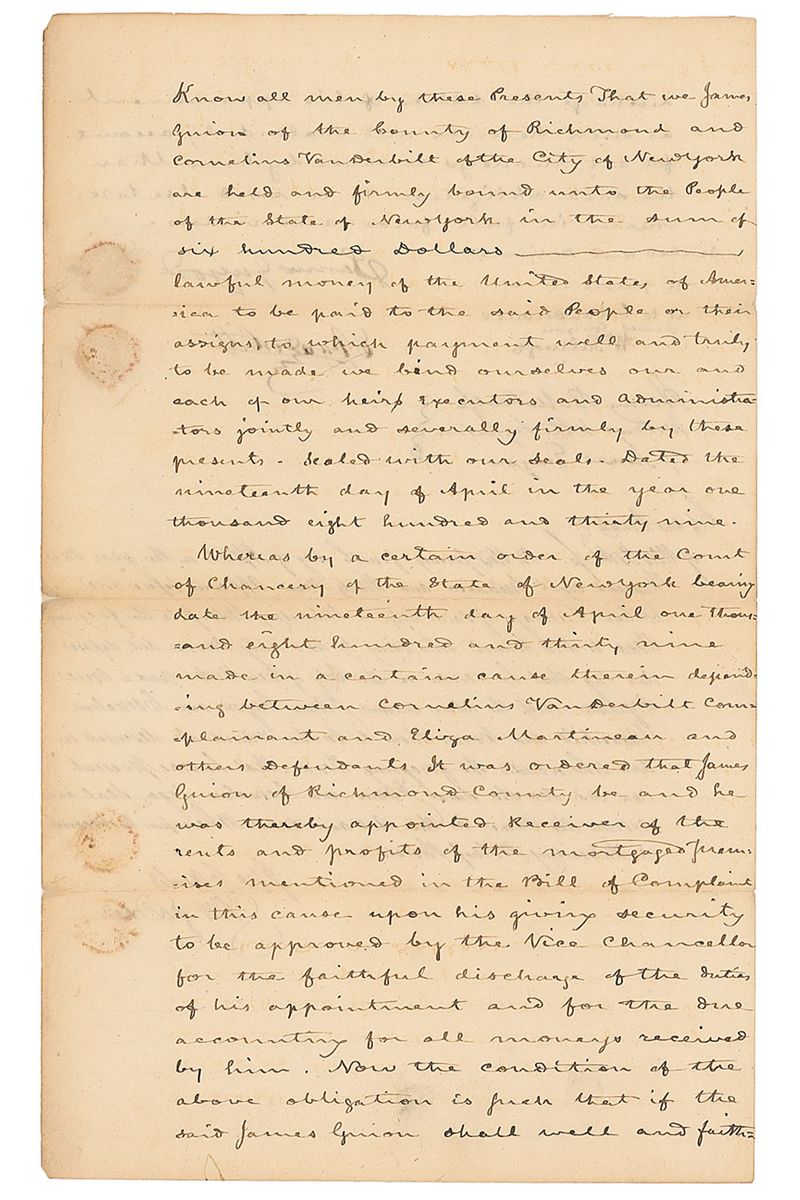 Know all men by these Presents That we James
Guion of the County of Richmond and
Cornelius VanDerbilt of the City of NewYork
are held and firmly bound unto the People
of the State of NewYork in the sum of
six hundred Dollars
lawful money of the United States of Amer=
=ica to be paid to the said People or their
assigns, to which payment well and truly
to be made we bind ourselves our and
each of our heirs Executors and Administra=
=tors jointly and severally firmly by these
presents - Sealed with our Seals. Dated the
nineteenth day of April in the year one
thousand eight hundred and thirty nine.
Whereas by a certain order of the Court
of Chancery of the State of NewYork bearing
date the nineteenth day of April one thous=
=and eight hundred and thirty nine
made in a certain cause therein depend=
=ing between Cornelius VanDerbilt Com=
=plainant and Eliza Martineau and
others Defendants It was ordered that James
Guion of Richmond County be and he
was thereby appointed Receiver of the
rents and profits of the mortgaged prem=
=ises mentioned in the Bill of Complaint
in this cause upon his giving security
to be approved by the Vice Chancellor
for the faithful discharge of the duties
of his appointment and for the due
accounting for all moneys received
by him. Now the condition of the
above obligation is such that if the
said James Guion shall well and faith=